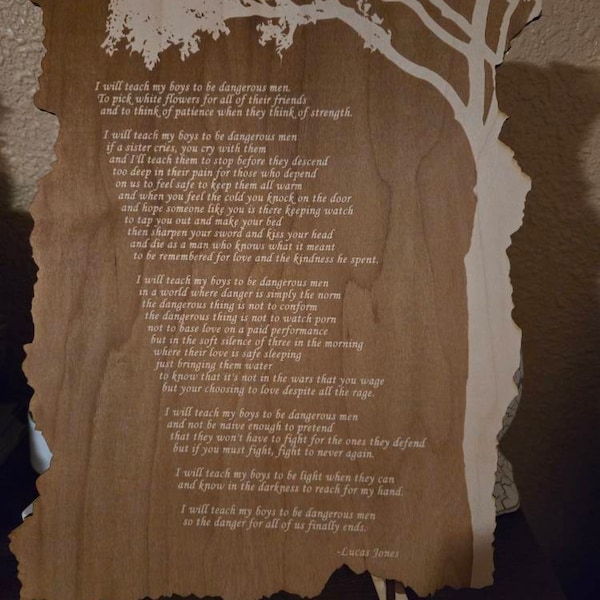 I will teach my boys to be dangerous men.
To pick white flowers for all of their friends
and to think of patience when they think of strength.
I will teach my boys to be dangerous men
if a sister cries, you cry with them
and I'll teach them to stop before they descend
too deep in their pain for those who depend
on us to feel safe to keep them all warm
and when you feel the cold you knock on the door
and hope someone like you is there keeping watch
to tap you out and make your bed
then sharpen your sword and kiss your head
and die as a man who knows what it meant
to be remembered for love and the kindness he spent.
I will teach my boys to be dangerous men
in a world where danger is simply the norm
the dangerous thing is not to conform
the dangerous thing is not to watch porn
not to base love on a paid performance
but in the soft silence of three in the morning
where their love is safe sleeping
just bringing them water
to know that it's not in the wars that you wage
but your choosing to love despite all the rage.
I will teach my boys to be dangerous men
and not be naive enough to pretend
that they won't have to fight for the ones they defend
but if you must fight, fight to never again.
I will teach my boys to be light when they can
and know in the darkness to reach for my hand.
I will teach my boys to be dangerous men
so the danger for all of us finally ends.
-Lucas Jones